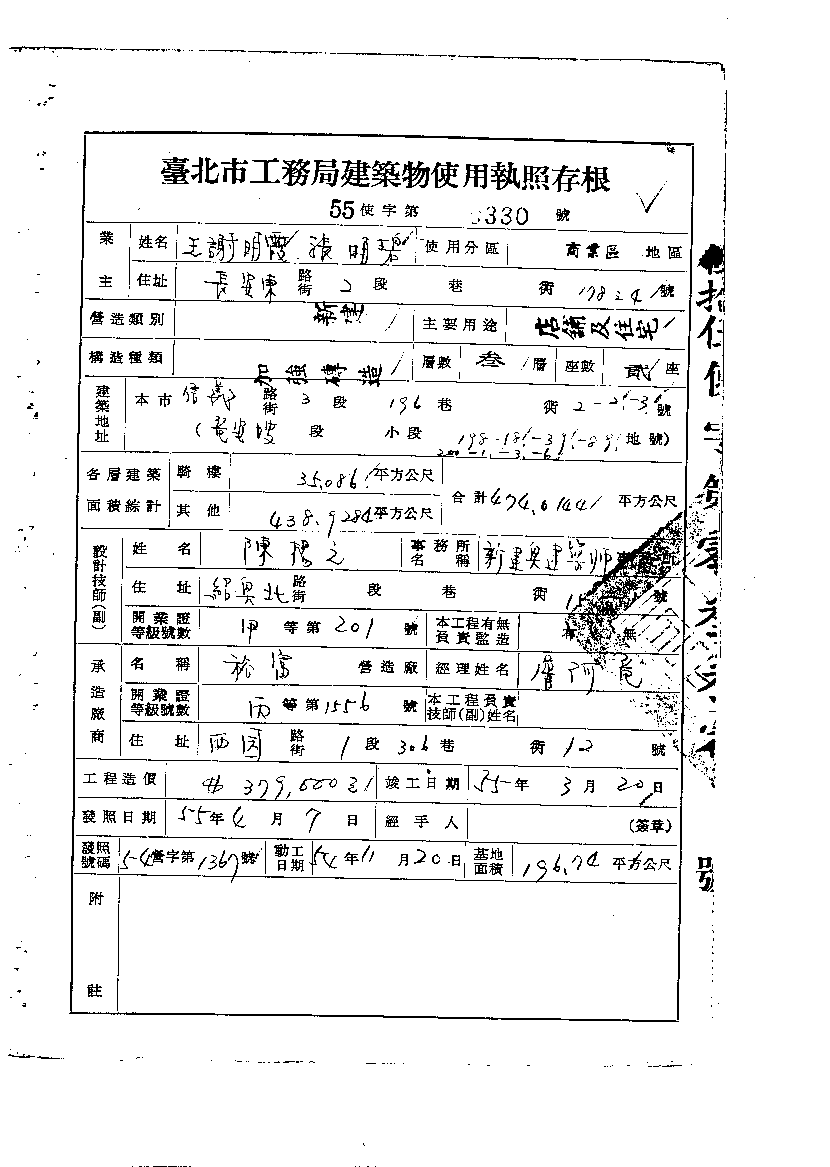 臺北市工務局建築物使用執照存根
55使字第 330 號
業主 姓名 王謝明霞 張明 使用分區 商業區 地區
住址 長安東 路街 2 段 巷 街 號
營造類別 新建 主要用途 店舖及住宅
構造種類 加強磚造 層數 叁 層 座數 貳 座
建築地址 本市 信義 路街 3 段 196 巷 街 2-2 -3 號
( 段 小段 198-18 -39 -89 地號)
200-1 -3 -6
各層建築面積綜計 騎樓 35.086 平方公尺 合計 474.0144 平方公尺
其他 438.9284 平方公尺
設計技師(副) 姓名 陳陽之 事務所名稱 新建奧建築師
住址 紹興北 路街 段 巷 街 15 號
開業證等級號數 甲 等第 201 號 本工程有無負責監造 有 無
承造廠商 名稱 裕富 營造廠 經理姓名
開業證等級號數 丙 等第 1556 號 本工程負責技師(副)姓名
住址 西園 路街 1 段 306 巷 街 12 號
工程造價 379,000 竣工日期 55年 3月 20日
發照日期 55年 4月 7日 經手人 (簽章)
發照號碼 54營字第1367號 動工日期 54年11月20日 基地面積 196.74 平方公尺
附註
號